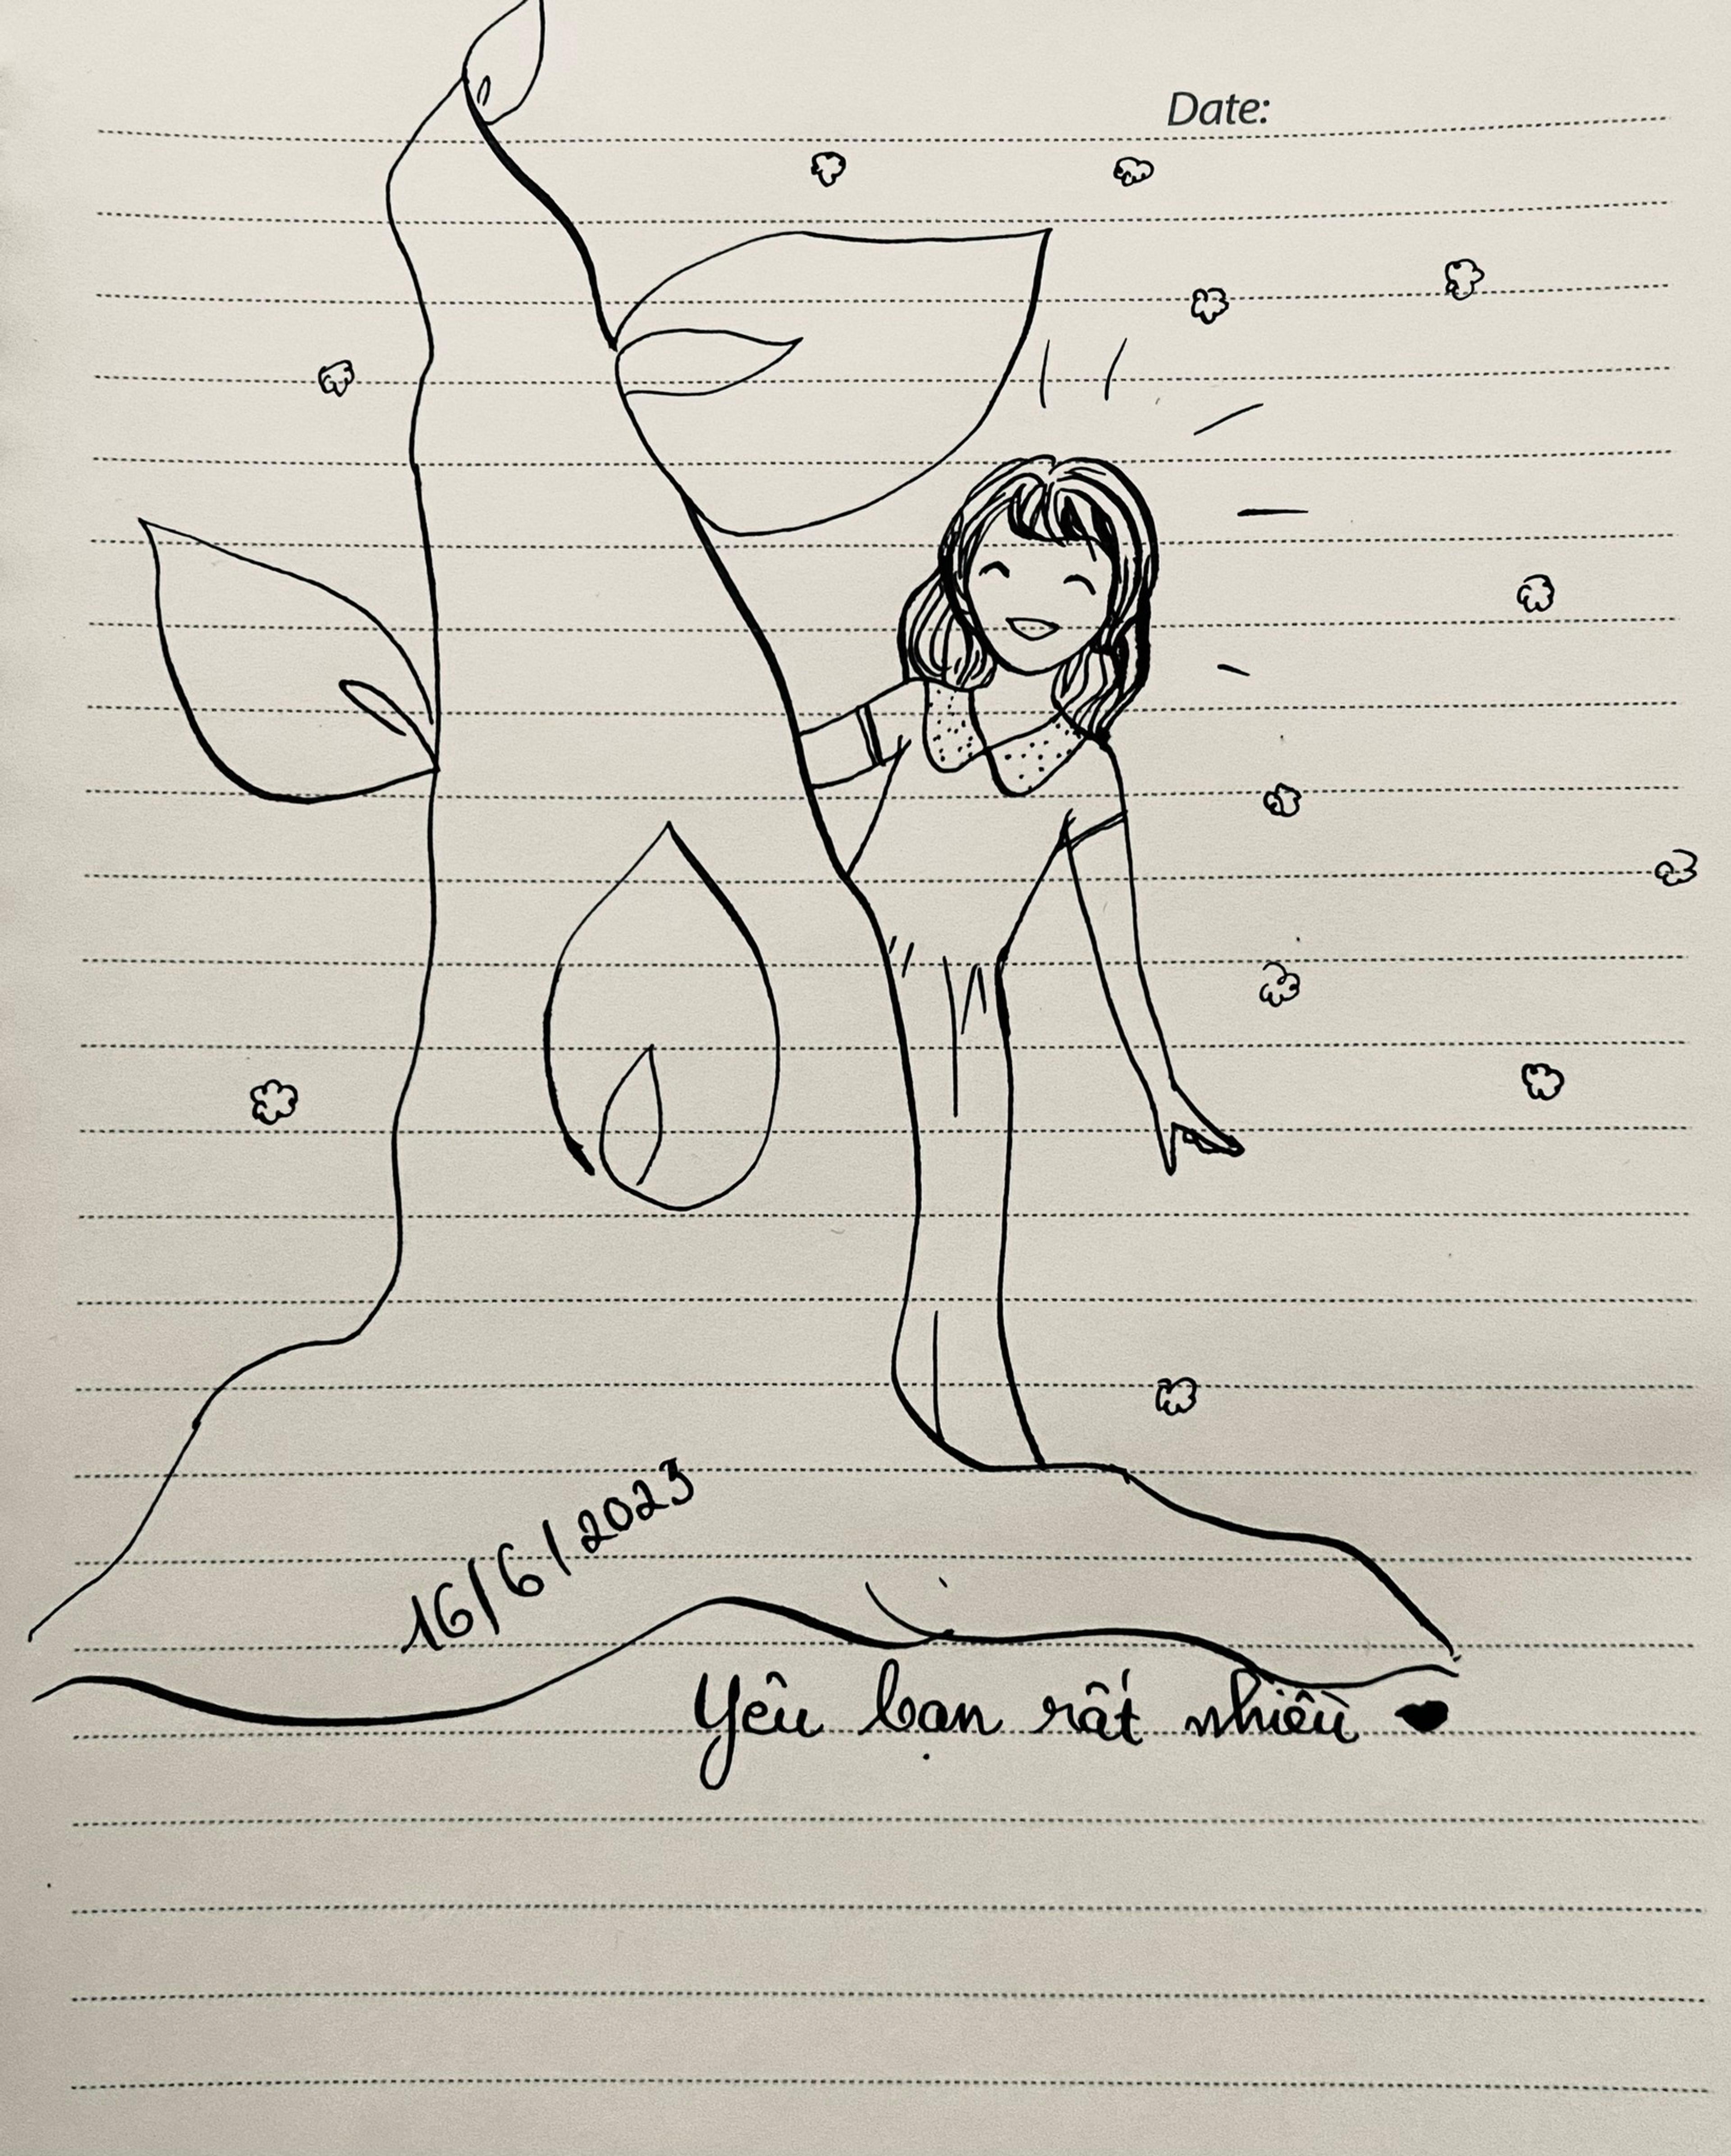 Date:
16/6/2023
Yêu bạn rất nhiều